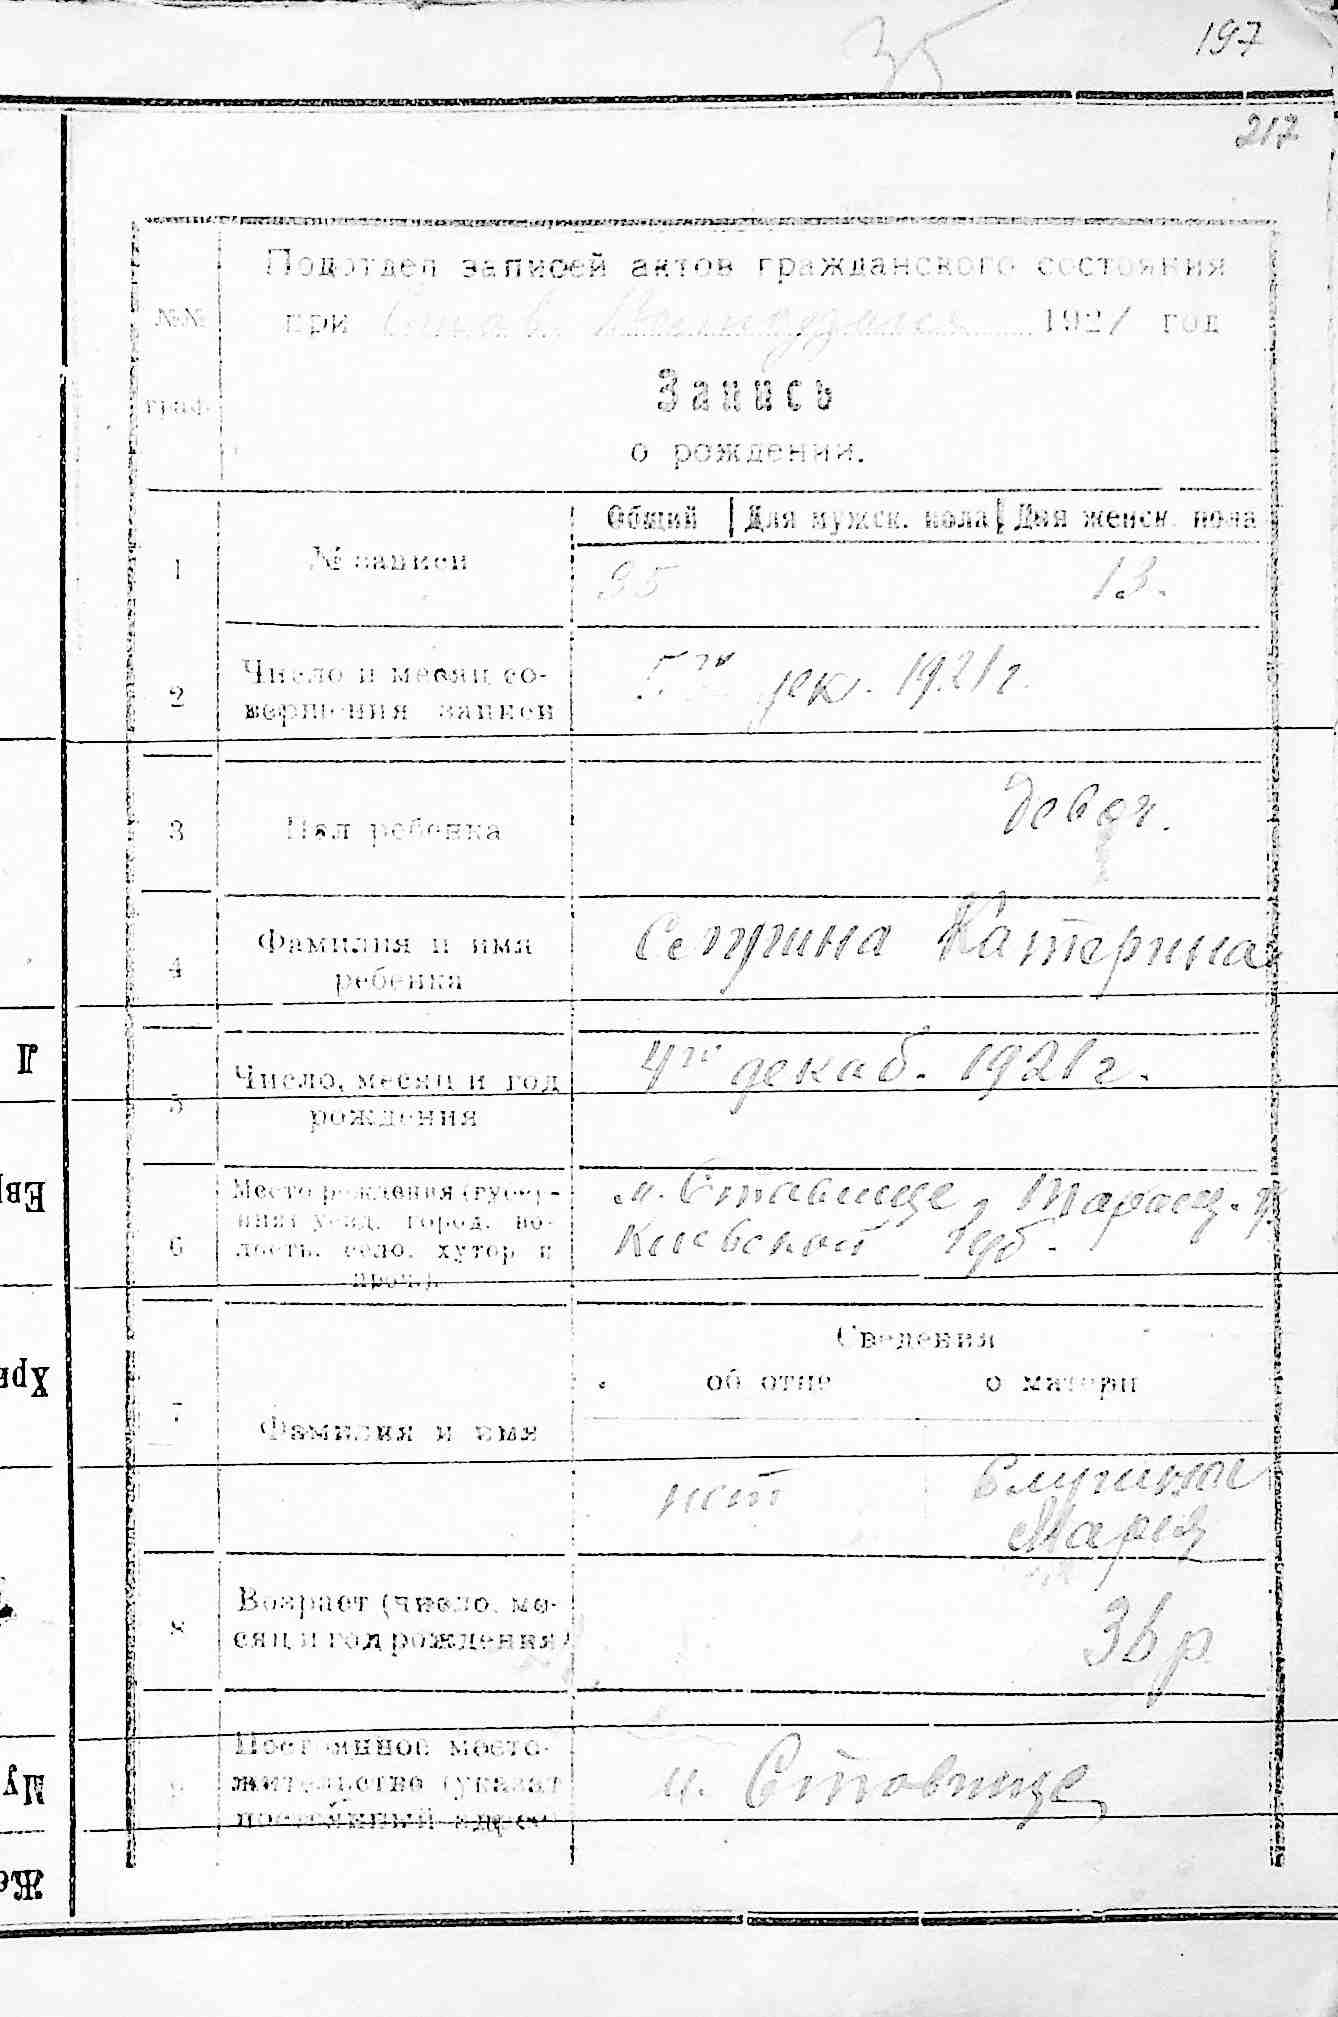 35
197
217
Подотдел записей актов гражданского состояния
№№
при 1921 год
граф.
Запись
о рождении.
Общий Для мужск. пола Для женск. пола
1 № записи 35 13.
2 Число и месяц со-
вершения записи
5го дек. 1921 г.
3 Пол ребенка
девоч.
4 Фамилия и имя
ребенка
Катерина
5 Число, месяц и год
рождения
4го декаб. 1921 г.
6 Место рождения (губер-
ния уезд, город, во-
лость, село, хутор и
проч.).
м. Ставище, Таращ. у.
Киевской губ.
Сведения
об отце о матери
7 Фамилия и имя
нет
Мария
8 Возраст (число, ме-
сяц и год рождения)
9 Постоянное место-
жительство (указат
постоянный адрес)
м. Ставище
Л
Евр
Хри
Му
Же